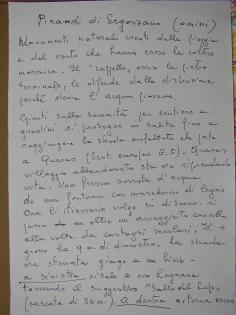 Piramidi di Segonzano (omini)
Monumenti naturali creati dalla pioggia
e dal vento che hanno eroso la coltre
morenica. Il "cappello", ossia la pietra
terminale, le difende dalla distruzione
poiché devia l'acqua piovana.
Giunti sulla sommità per sentiero a
gradini si prosegue in salita fino a
raggiungere la strada asfaltata che porta
a Quaras (Sent. europeo E.5). Quaras
villaggio abbandonato sta ora riprendendo
vita. Una fresca sorsata d'acqua
da una fontana con
di legno
Ora l'itinerario volge in discesa. Si
passa un oltre un
alla volta dei castagni secolari. Il +
grosso ha 9 m. di diametro. La strada
ora sterrata giunge a un bivio -
a sinistra risale a rio Regnana
toccando il suggestivo "Salto del Lupo"
(cascata di 36 m). A destra ritorna verso